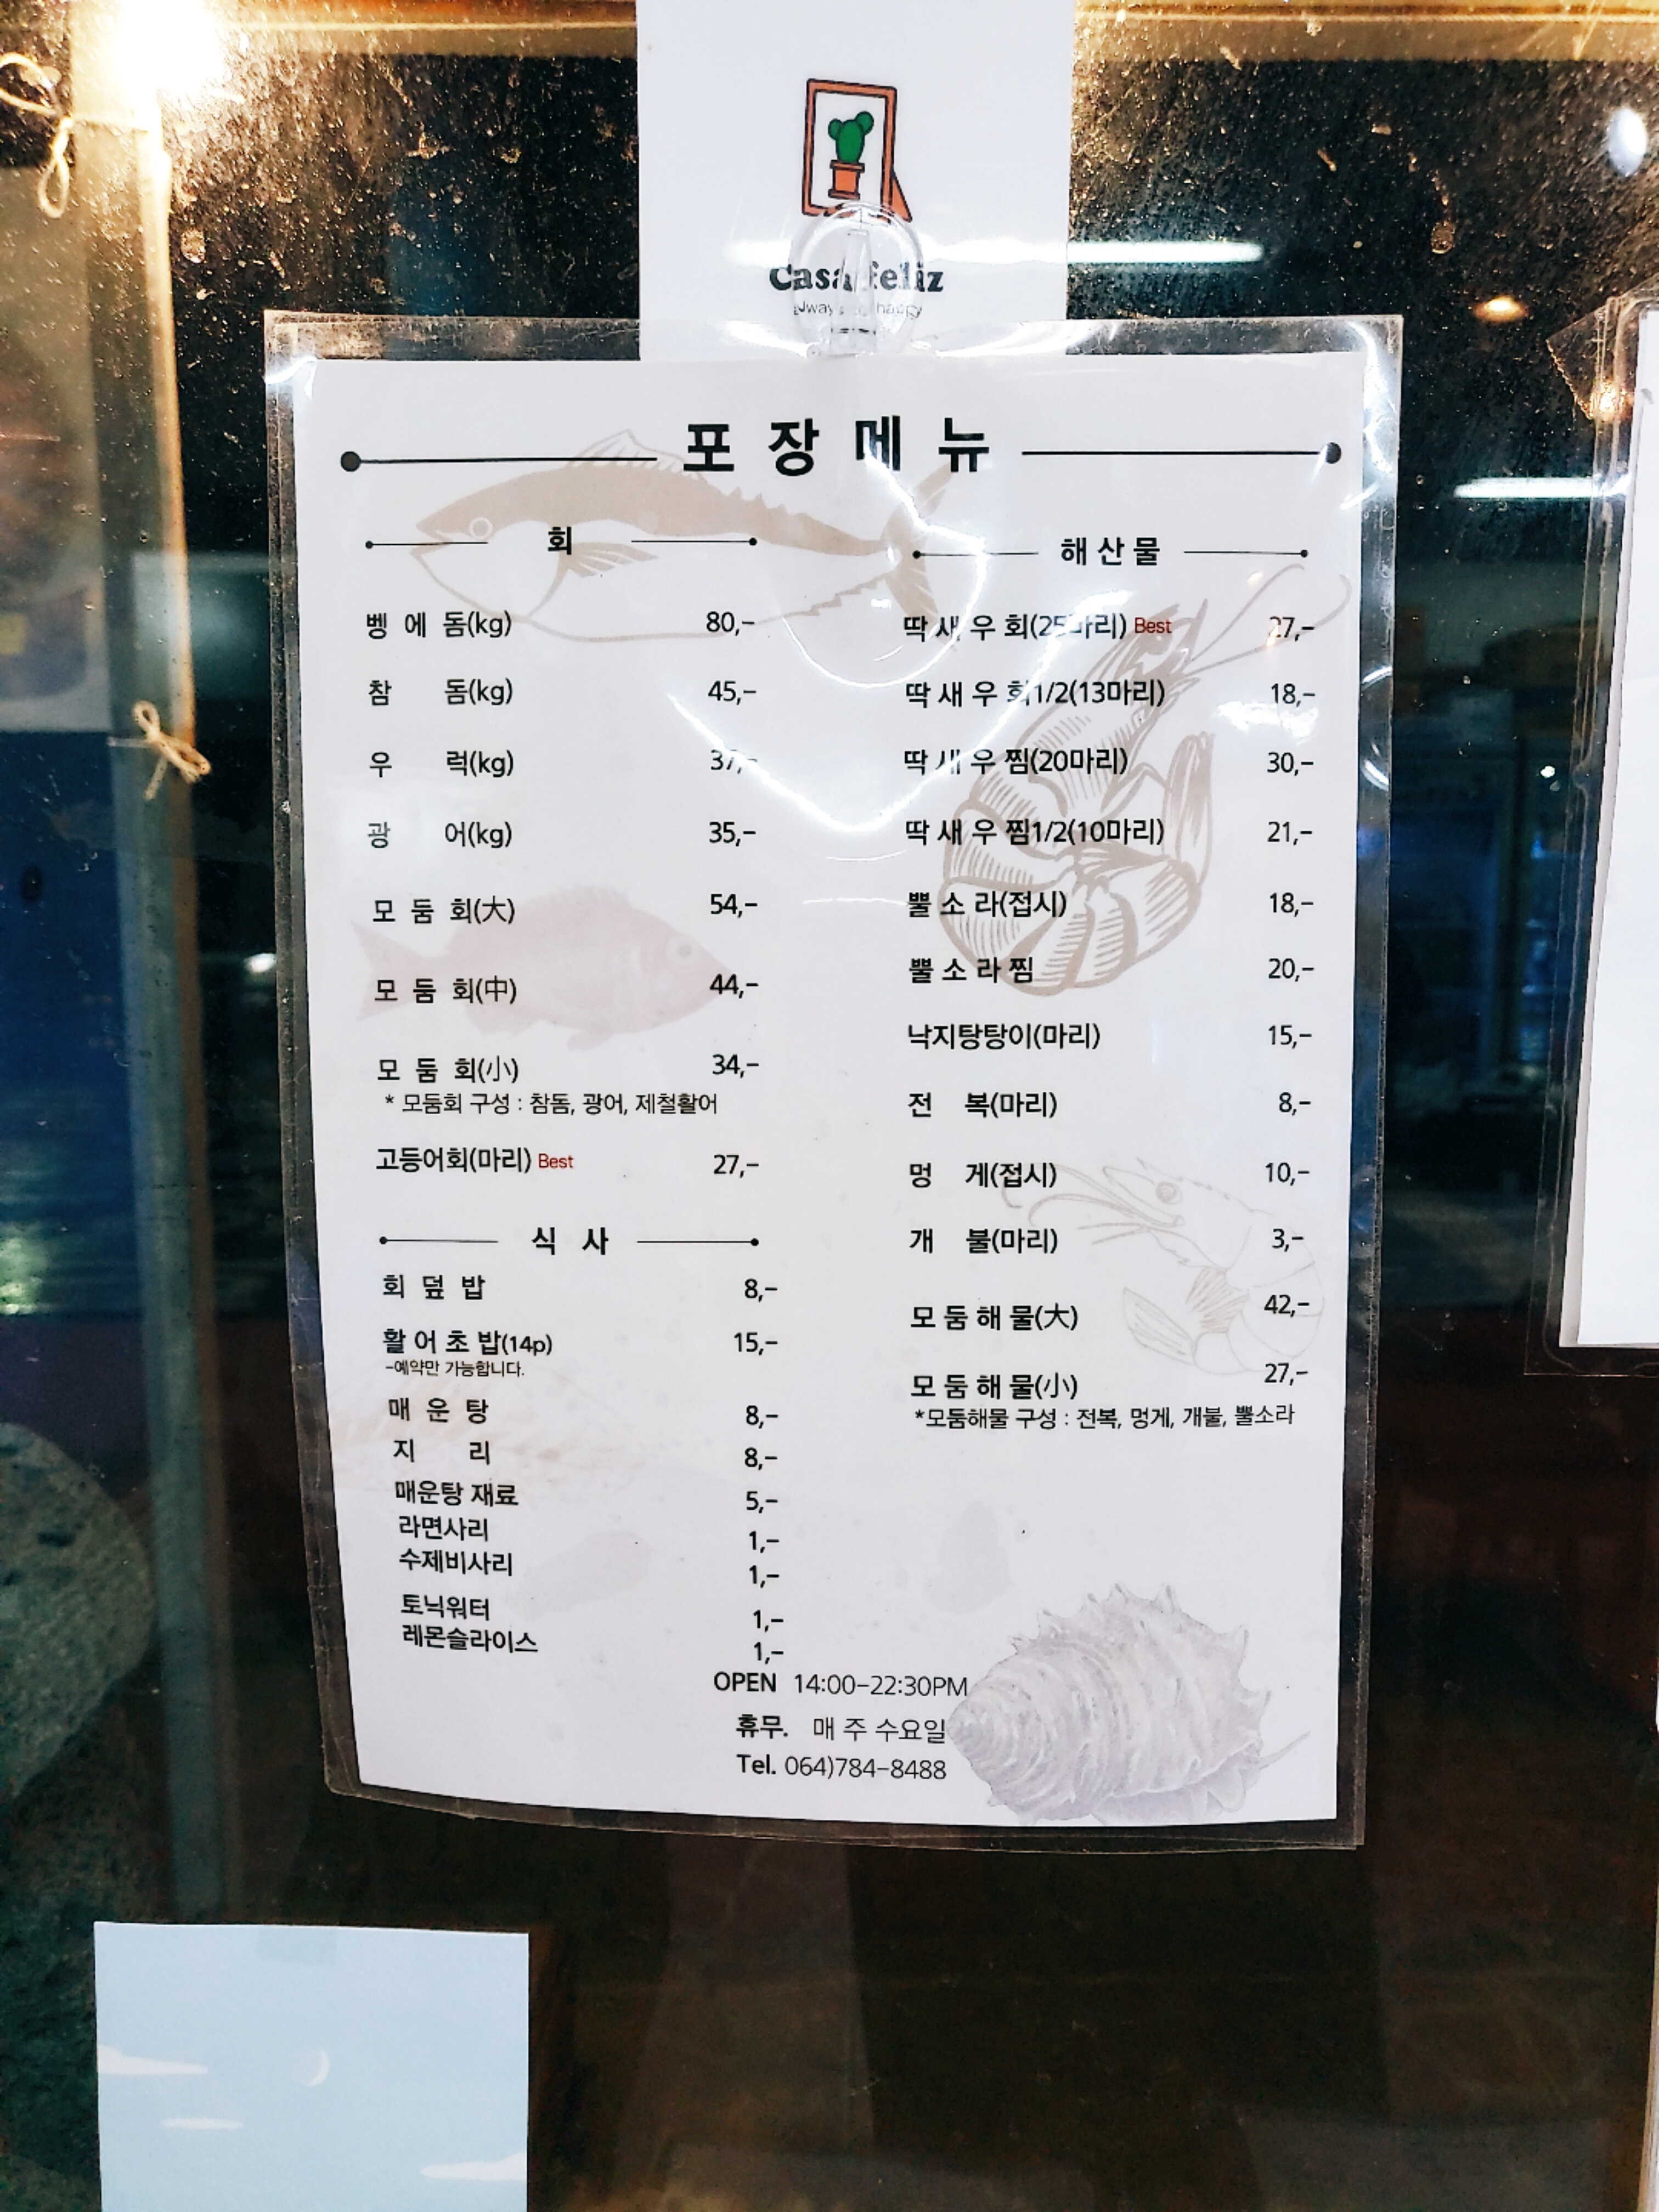 Casa feliz
포장메뉴
회
벵에돔(kg) 80,-
참돔(kg) 45,-
우럭(kg) 37,-
광어(kg) 35,-
모둠회(大) 54,-
모둠회(中) 44,-
모둠회(小) 34,-
* 모둠회 구성 : 참돔, 광어, 제철활어
고등어회(마리) Best 27,-
식사
회덮밥 8,-
활어초밥(14p) 15,-
-예약만 가능합니다.
매운탕 8,-
지리 8,-
매운탕 재료 5,-
라면사리 1,-
수제비사리 1,-
토닉워터 1,-
레몬슬라이스 1,-
해산물
딱새우회(25마리) Best 27,-
딱새우회1/2(13마리) 18,-
딱새우찜(20마리) 30,-
딱새우찜1/2(10마리) 21,-
뿔소라(접시) 18,-
뿔소라찜 20,-
낙지탕탕이(마리) 15,-
전복(마리) 8,-
멍게(접시) 10,-
개불(마리) 3,-
모둠해물(大) 42,-
모둠해물(小) 27,-
*모둠해물 구성 : 전복, 멍게, 개불, 뿔소라
OPEN 14:00-22:30PM
휴무. 매 주 수요일
Tel. 064)784-8488